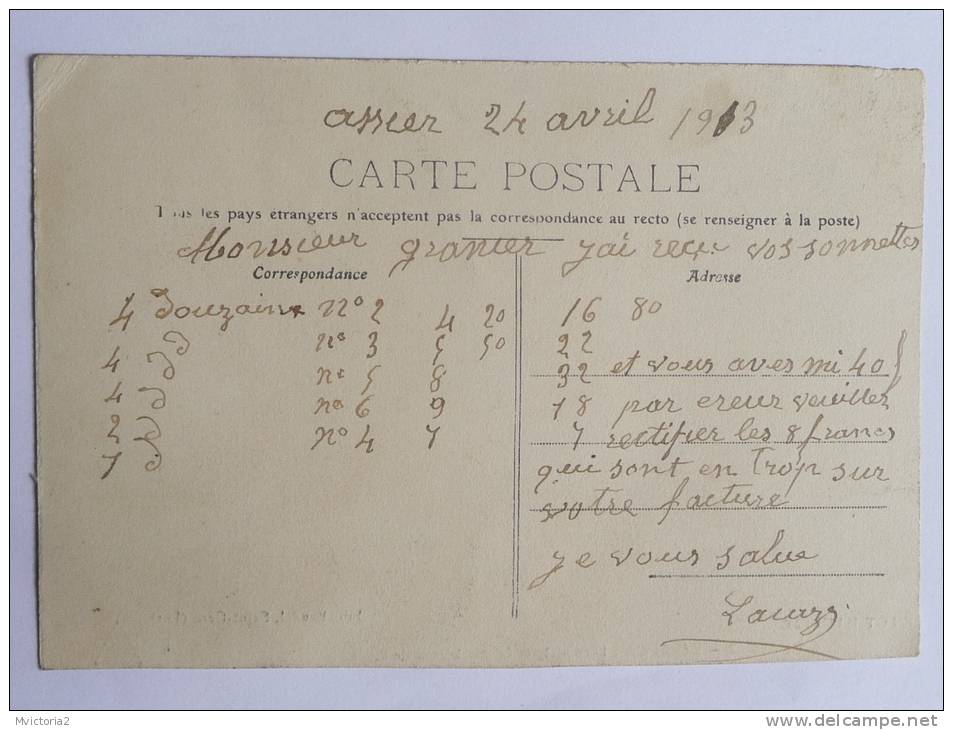 assier 24 avril 1913
CARTE POSTALE
Tous les pays étrangers n'acceptent pas la correspondance au recto (se renseigner à la poste)
Monsieur granier j'ai reçu vos sonnettes
Correspondance
Adresse
4 Douzaine nº 2 4 20 16 80
4 d nº 3 5 50 22
4 d nº 5 8 32 et vous aves mi 40
2 d nº 6 9 18 par ereur veuillez
1 d nº 4 7 7 rectifier les 8 francs
qui sont en trop sur
votre facture
je vous salue
Mvictoria2
www.delcampe.net